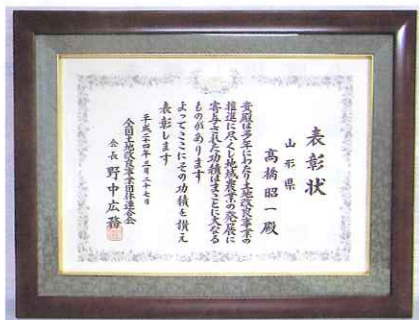 表彰状
山形県
高橋昭一殿
貴殿は多年にわたり土地改良事業の
推進に尽くし地域農業の発展に
寄与された功績はまことに大なる
ものがあります
よってここにその功績を讃え
表彰します
平成二十四年三月二十七日
全国土地改良事業団体連合会
会長 野中広務